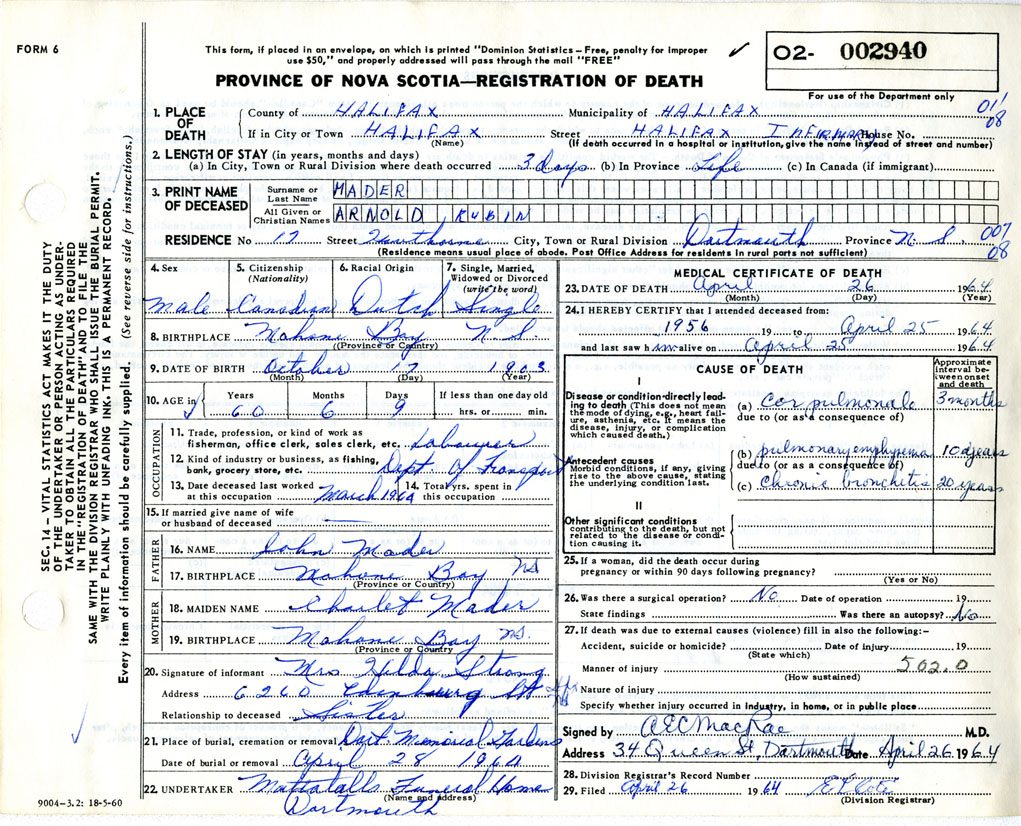 FORM 6
This form, if placed in an envelope, on which is printed "Dominion Statistics – Free, penalty for improper
use $50," and properly addressed will pass through the mail "FREE"
✓
O2- 002940
PROVINCE OF NOVA SCOTIA—REGISTRATION OF DEATH
For use of the Department only
1. PLACE OF DEATH
County of HALIFAX Municipality of HALIFAX 011
08
If in City or Town HALIFAX Street HALIFAX INFIRMARY House No.
(Name) (If death occurred in a hospital or institution, give the name instead of street and number)
2. LENGTH OF STAY (in years, months and days)
(a) In City, Town or Rural Division where death occurred 3 days (b) In Province Life (c) In Canada (if immigrant)
3. PRINT NAME OF DECEASED
Surname or Last Name MADER
All Given or Christian Names ARNOLD RUBIN
RESIDENCE No 17 Street Hawthorne City, Town or Rural Division Dartmouth Province N. S. 007
08
(Residence means usual place of abode. Post Office Address for residents in rural parts not sufficient)
4. Sex 5. Citizenship (Nationality) 6. Racial Origin 7. Single, Married, Widowed or Divorced (write the word)
Male Canadian Dutch Single
8. BIRTHPLACE Mahone Bay N. S.
(Province or Country)
9. DATE OF BIRTH October 17 1903
(Month) (Day) (Year)
10. AGE in Years Months Days If less than one day old
60 6 9 hrs. or min.
OCCUPATION
11. Trade, profession, or kind of work as
fisherman, office clerk, sales clerk, etc. Labourer
12. Kind of industry or business, as fishing,
bank, grocery store, etc. Dept. of Transport
13. Date deceased last worked at this occupation March 1964 14. Total yrs. spent in this occupation
15. If married give name of wife
or husband of deceased —
FATHER
16. NAME John Mader
17. BIRTHPLACE Mahone Bay NS
(Province or Country)
MOTHER
18. MAIDEN NAME Mader
19. BIRTHPLACE Mahone Bay NS.
(Province or Country
20. Signature of informant Mrs Hilda Strong
Address 6260
Relationship to deceased Sister
21. Place of burial, cremation or removal Dart. Memorial Gardens
Date of burial or removal April 28 1964
22. UNDERTAKER Mattatalls Funeral Home
(Name and address)
Dartmouth
9004–3.2: 18-5-60
MEDICAL CERTIFICATE OF DEATH
23. DATE OF DEATH April 26 1964
(Month) (Day) (Year)
24. I HEREBY CERTIFY that I attended deceased from:
1956 19 to April 25 1964
and last saw him alive on April 25 1964
CAUSE OF DEATH
Approximate interval between onset and death
I
Disease or condition-directly leading to death (This does not mean the mode of dying, e.g., heart failure, asthenia, etc. It means the disease, injury, or complication which caused death.)
(a) cor pulmonale 3 months
due to (or as a consequence of)
Antecedent causes
Morbid conditions, if any, giving rise to the above cause, stating the underlying condition last.
(b) pulmonary emphysema 10 years
due to (or as a consequence of)
(c) Chronic bronchitis 20 years
II
Other significant conditions
contributing to the death, but not related to the disease or condition causing it.
25. If a woman, did the death occur during
pregnancy or within 90 days following pregnancy?
(Yes or No)
26. Was there a surgical operation? No Date of operation 19
State findings Was there an autopsy? No
27. If death was due to external causes (violence) fill in also the following:–
Accident, suicide or homicide? Date of injury 19
(State which)
Manner of injury 502.0
(How sustained)
Nature of injury
Specify whether injury occurred in industry, in home, or in public place
Signed by AEC MacRae M.D.
Address 34 Queen St, Dartmouth Date April 26 1964
28. Division Registrar's Record Number
29. Filed April 26 1964
(Division Registrar)
SEC. 14 – VITAL STATISTICS ACT MAKES IT THE DUTY
OF THE UNDERTAKER OR PERSON ACTING AS UNDER-
TAKER TO OBTAIN ALL THE PARTICULARS REQUIRED
IN THE "REGISTRATION OF DEATH" AND TO FILE THE
SAME WITH THE DIVISION REGISTRAR WHO SHALL ISSUE THE BURIAL PERMIT.
WRITE PLAINLY WITH UNFADING INK. THIS IS A PERMANENT RECORD.
Every item of information should be carefully supplied. (See reverse side for instructions.)